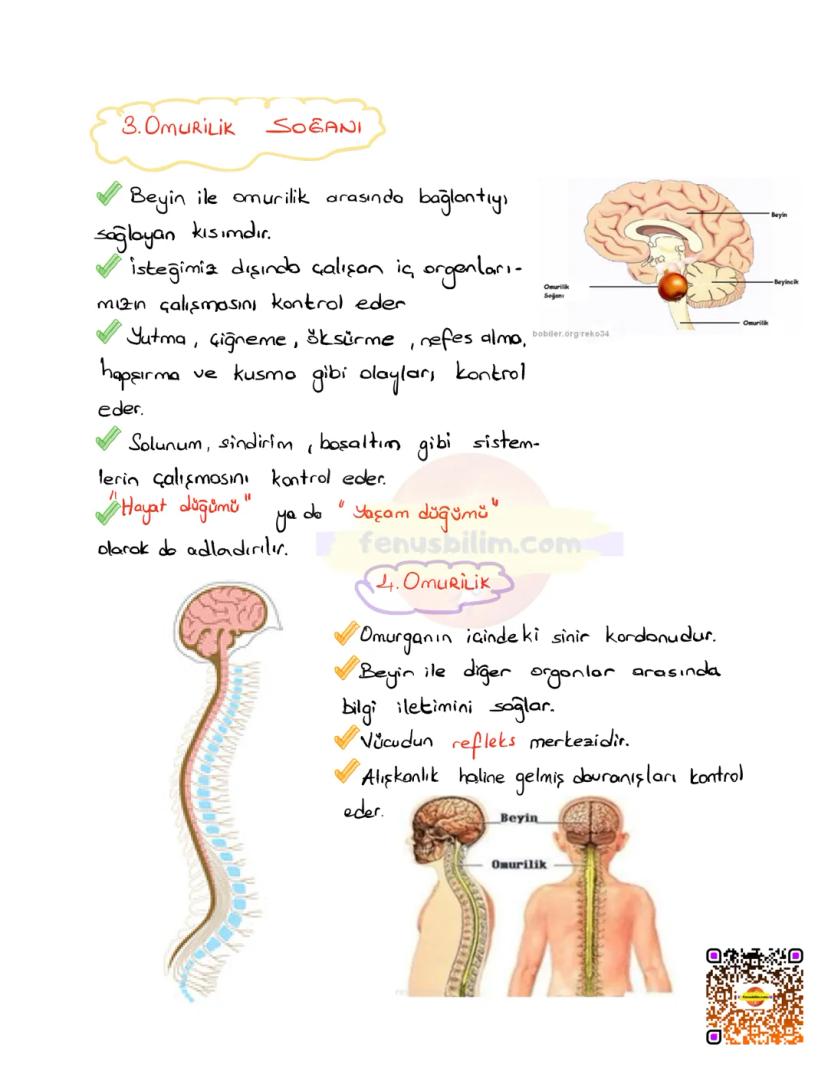 3. OMURİLİK SOĞANI
Beyin ile omurilik arasında bağlantıyı
sağlayan kısımdır.
isteğimiz dışında çalışan iç organları-
mızın çalışmasını kontrol eder
Yutma, çiğneme, öksürme, nefes alma,
hapşırma ve kusma gibi olayları kontrol
eder.
Solunum, sindirim, boşaltım gibi sistem-
lerin çalışmasını kontrol eder.
"Hayat düğümü" ya da "Yaşam düğümü"
olarak da adlandırılır.
Beyin
Omurilik
Soğanı
Beyincik
Omurilik
bobiler.org/reko34
fenusbilim.com
4. OMURİLİK
Omurganın içindeki sinir kordonudur.
Beyin ile diğer organlar arasında
bilgi iletimini sağlar.
Vücudun refleks merkezidir.
Alışkanlık haline gelmiş davranışları kontrol
eder.
Beyin
Omurilik